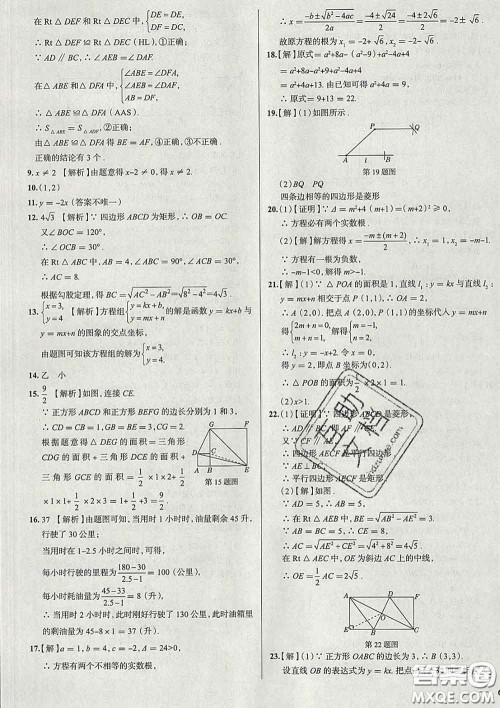 在 Rt △ DEF 和 Rt △ DEC 中，{DE = DE, DF = DC,
∴ Rt △ DEF ≌ Rt △ DEC (HL)，①正确；
∵ AD ∥ BC，∴ ∠AEB = ∠DAF.
在 △ ABE 和 △ DFA 中，{∠AEB = ∠DAF, ∠ABE = ∠DFA, AB = DF,
∴ △ ABE ≌ △ DFA (AAS).
∴ S△ABE = S△ADF，②正确；
由 △ ABE ≌ △ DFA 得 BE = AF，④正确；③不正确.
正确的结论有 3 个.
9. x ≠ 2 【解析】由题意得 x−2 ≠ 0，得 x ≠ 2.
10. (1,2)
11. y = −2x (答案不唯一)
12. 4√3 【解析】∵ 四边形 ABCD 为矩形，∴ OB = OC.
又∠BOC = 120°，
∴ ∠OCB = 30°.
在 Rt △ ABC 中，∠ABC = 90°，AB = 4，
∴ AC = 8.
根据勾股定理，得 BC = √(AC² − AB²) = √(8² − 4²) = 4√3.
13. {x = 3, y = 4 【解析】方程组{y = kx + b, y = mx + n 的解是函数 y = kx+b 与
y = mx+n 的图象的交点坐标，
由题图可知该方程组的解为{x = 3, y = 4.
14. 乙 小
15. 9/2 【解析】如图，连接 CE.
∵ 正方形 ABCD 和正方形 BEFG 的边长分别为 1 和 3，
∴ CD = CB = 1，GB = BE = 3，GC = 2.
根据题意得 △ DEG 的面积 = 三角形
CDG 的面积 + 三角形 CDE 的面积 +
三角形 GCE 的面积 = 1/2 × 1 × 2 + 1/2
× 1 × 1 + 1/2 × 2 × 3 = 9/2.
第 15 题图
16. 37 【解析】由题图可知，当用时 1 小时时，油量剩余 45 升，
行驶了 30 公里；
当用时在 1−2.5 小时之间时，可得：
每小时行驶的里程为 (180−30)/(2.5−1) = 100 (公里)，
每小时耗油量为 (45−33)/(2.5−1) = 8 (升).
∴ 当用时 2 小时时，此时刚好行驶了 130 公里，此时油箱里
的剩油量为 45−8×1 = 37 (升).
17. 【解】a = 1，b = 4，c = −2，Δ = 24 > 0，
∴ 方程有两个不相等的实数根，
∴ x = (−b ± √(b² − 4ac))/2a = (−4 ± √24)/2 = (−4 ± 2√6)/2 = −2 ± √6.
故原方程的根为 x₁ = −2 + √6，x₂ = −2 − √6.
18. 【解】原式 = a²+6a−(a−9)+a²−4a+4
= a²+6a−a²+9+a²−4a+4
= a²+2a+13. 由已知可得 a²+2a = 9，
∴ 原式 = 9+13 = 22.
19. 【解】(1)如图所示.
第 19 题图
(2)BQ PQ
四条边相等的四边形是菱形
20. (1)【证明】∵ Δ = m²+4(m+1) = (m+2)² ≥ 0，
∴ 方程必有两个实数根.
(2)【解】解方程得 x = (−m ± (m+2))/2，
∵ 方程有一根为负数，
∴ −m−1 < 0，解得 m > −1.
21. 【解】(1)∵ △ POA 的面积是 1，直线 l₁：y = kx 与直线 l₂：
y = mx+n 相交于点 P (1,1)，∴ OA = 2，
∴ A(2,0). 把点 A(2,0)，P(1,1)的坐标代入 y = mx+n，
得{2m+n = 0, m+n = 1, 解得{m = −1, n = 2.
∴ l₂：y = −x+2. 令 x = 0，得 y = 2，
即点 B 坐标为(0,2).
∴ △ POB 的面积为 1/2 × 2 × 1 = 1.
(2)x > 1.
22. (1)【证明】∵ 四边形 ABCD 是菱形，
∴ AD ∥ BC，
∴ 四边形 AECF 是平行四边形.
∵ AE ⊥ BC，
∴ 平行四边形 AECF 是矩形.
∴ AD = 5，∴ AB = 5，
∴ AC = √(AE² + CE²) = √(4² + 8²) = 4√5，
∵ 在 Rt △ AEC 中，OE 为斜边 AC 上的中线，
∴ OE = 1/2 AC = 2√5.
第 22 题图
23. 【解】(1)∵ 正方形 OABC 的边长为 3，∴ B(3,3).
设直线 OB 的表达式为 y = kx.
答案圈
MXQE.COM